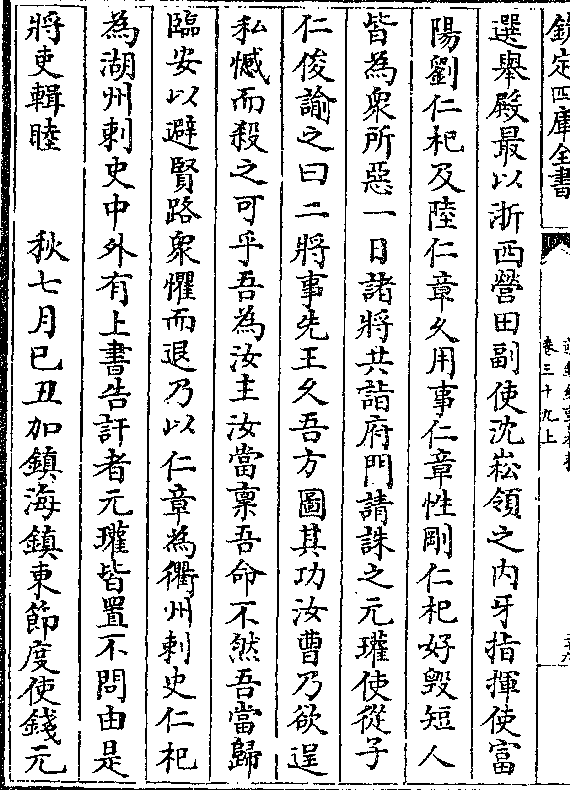 欽定四庫全書
卷三十九上
選舉殿最以浙西營田副使沈崧領之内牙指揮使富
陽劉仁杞及陸仁章乆用事仁章性剛仁杞好毁短人
皆為衆所惡一日諸將共詣府門請誅之元瓘使從子
仁俊諭之曰二將事先王乆吾方圖其功汝曹乃欲逞
私憾而殺之可乎吾為汝主汝當禀吾命不然吾當歸
臨安以避賢路衆懼而退乃以仁章為衢州刺史仁杞
為湖州刺史中外有上書告訐者元瓘皆置不問由是
將吏輯睦　　秋七月己丑加鎮海鎮東節度使錢元